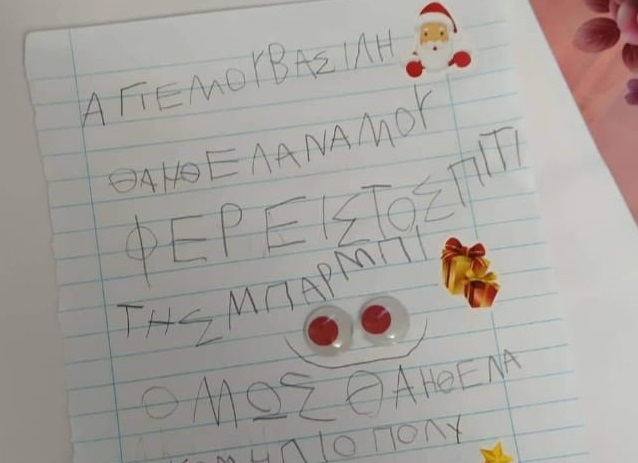 ΑΓΙΕΜΟΥΒΑΣΙΛΗ
ΘΑΗΘΕΛΑΝΑΜΟΥ
ΦΕΡΕΙΣΤΟΣΠΙΤΙ
ΤΗΣ ΜΠΑΡΜΠΙ
ΟΜΩΣ ΘΑΗΘΕΛΑ
ΠΙΟ ΠΟΛΥ